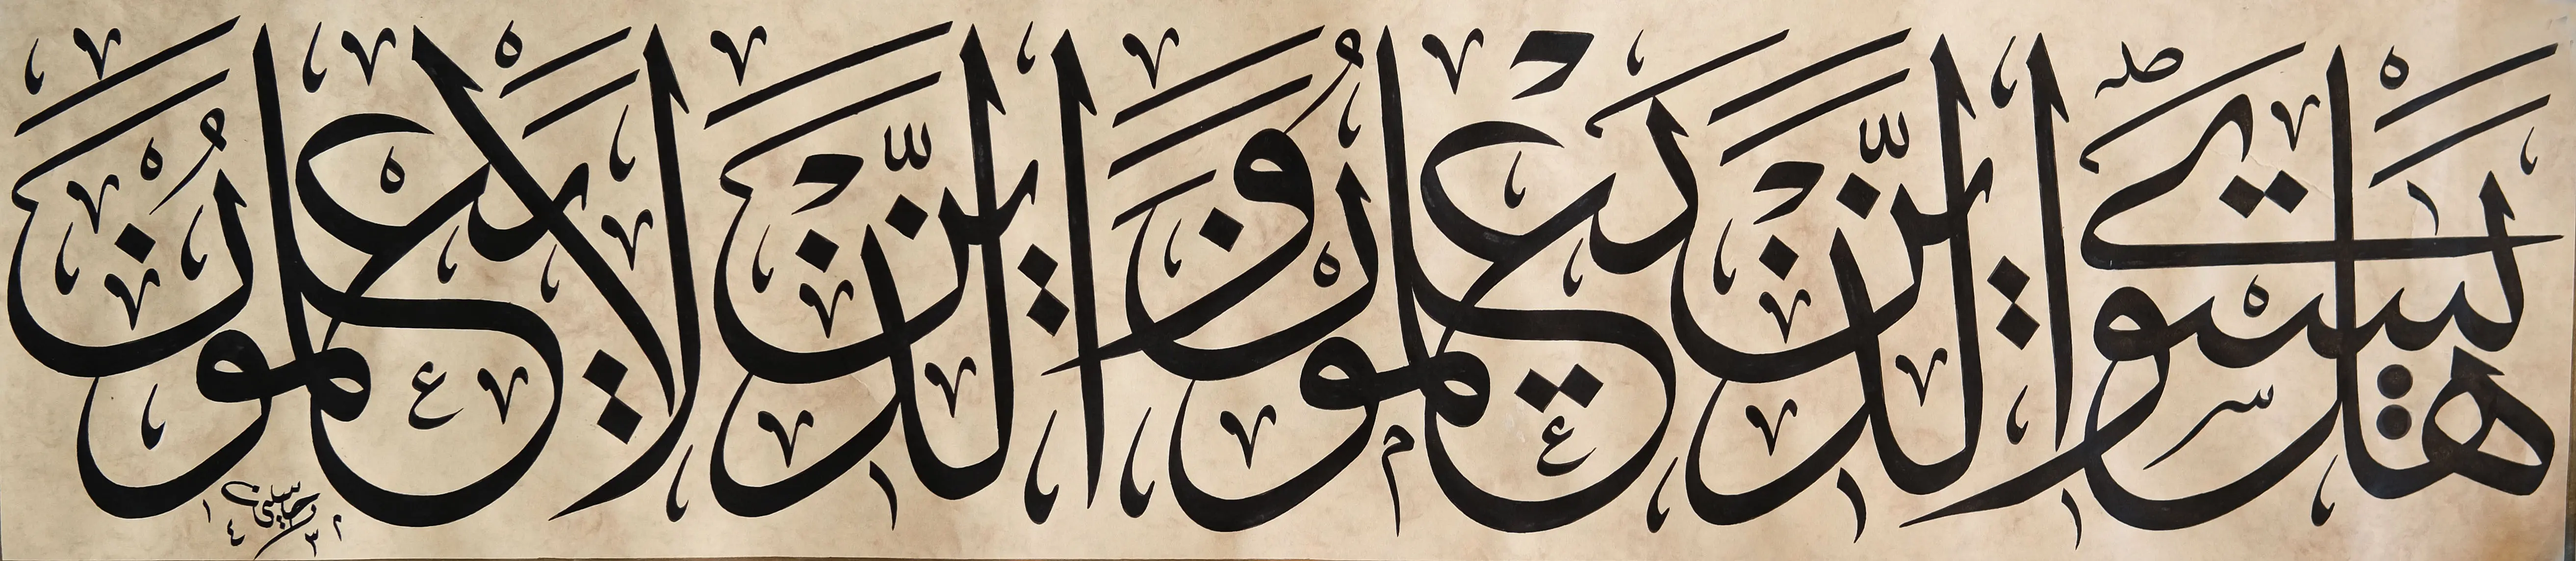 هَلْ يَسْتَوِي الَّذِينَ يَعْلَمُونَ وَالَّذِينَ لَا يَعْلَمُونَ